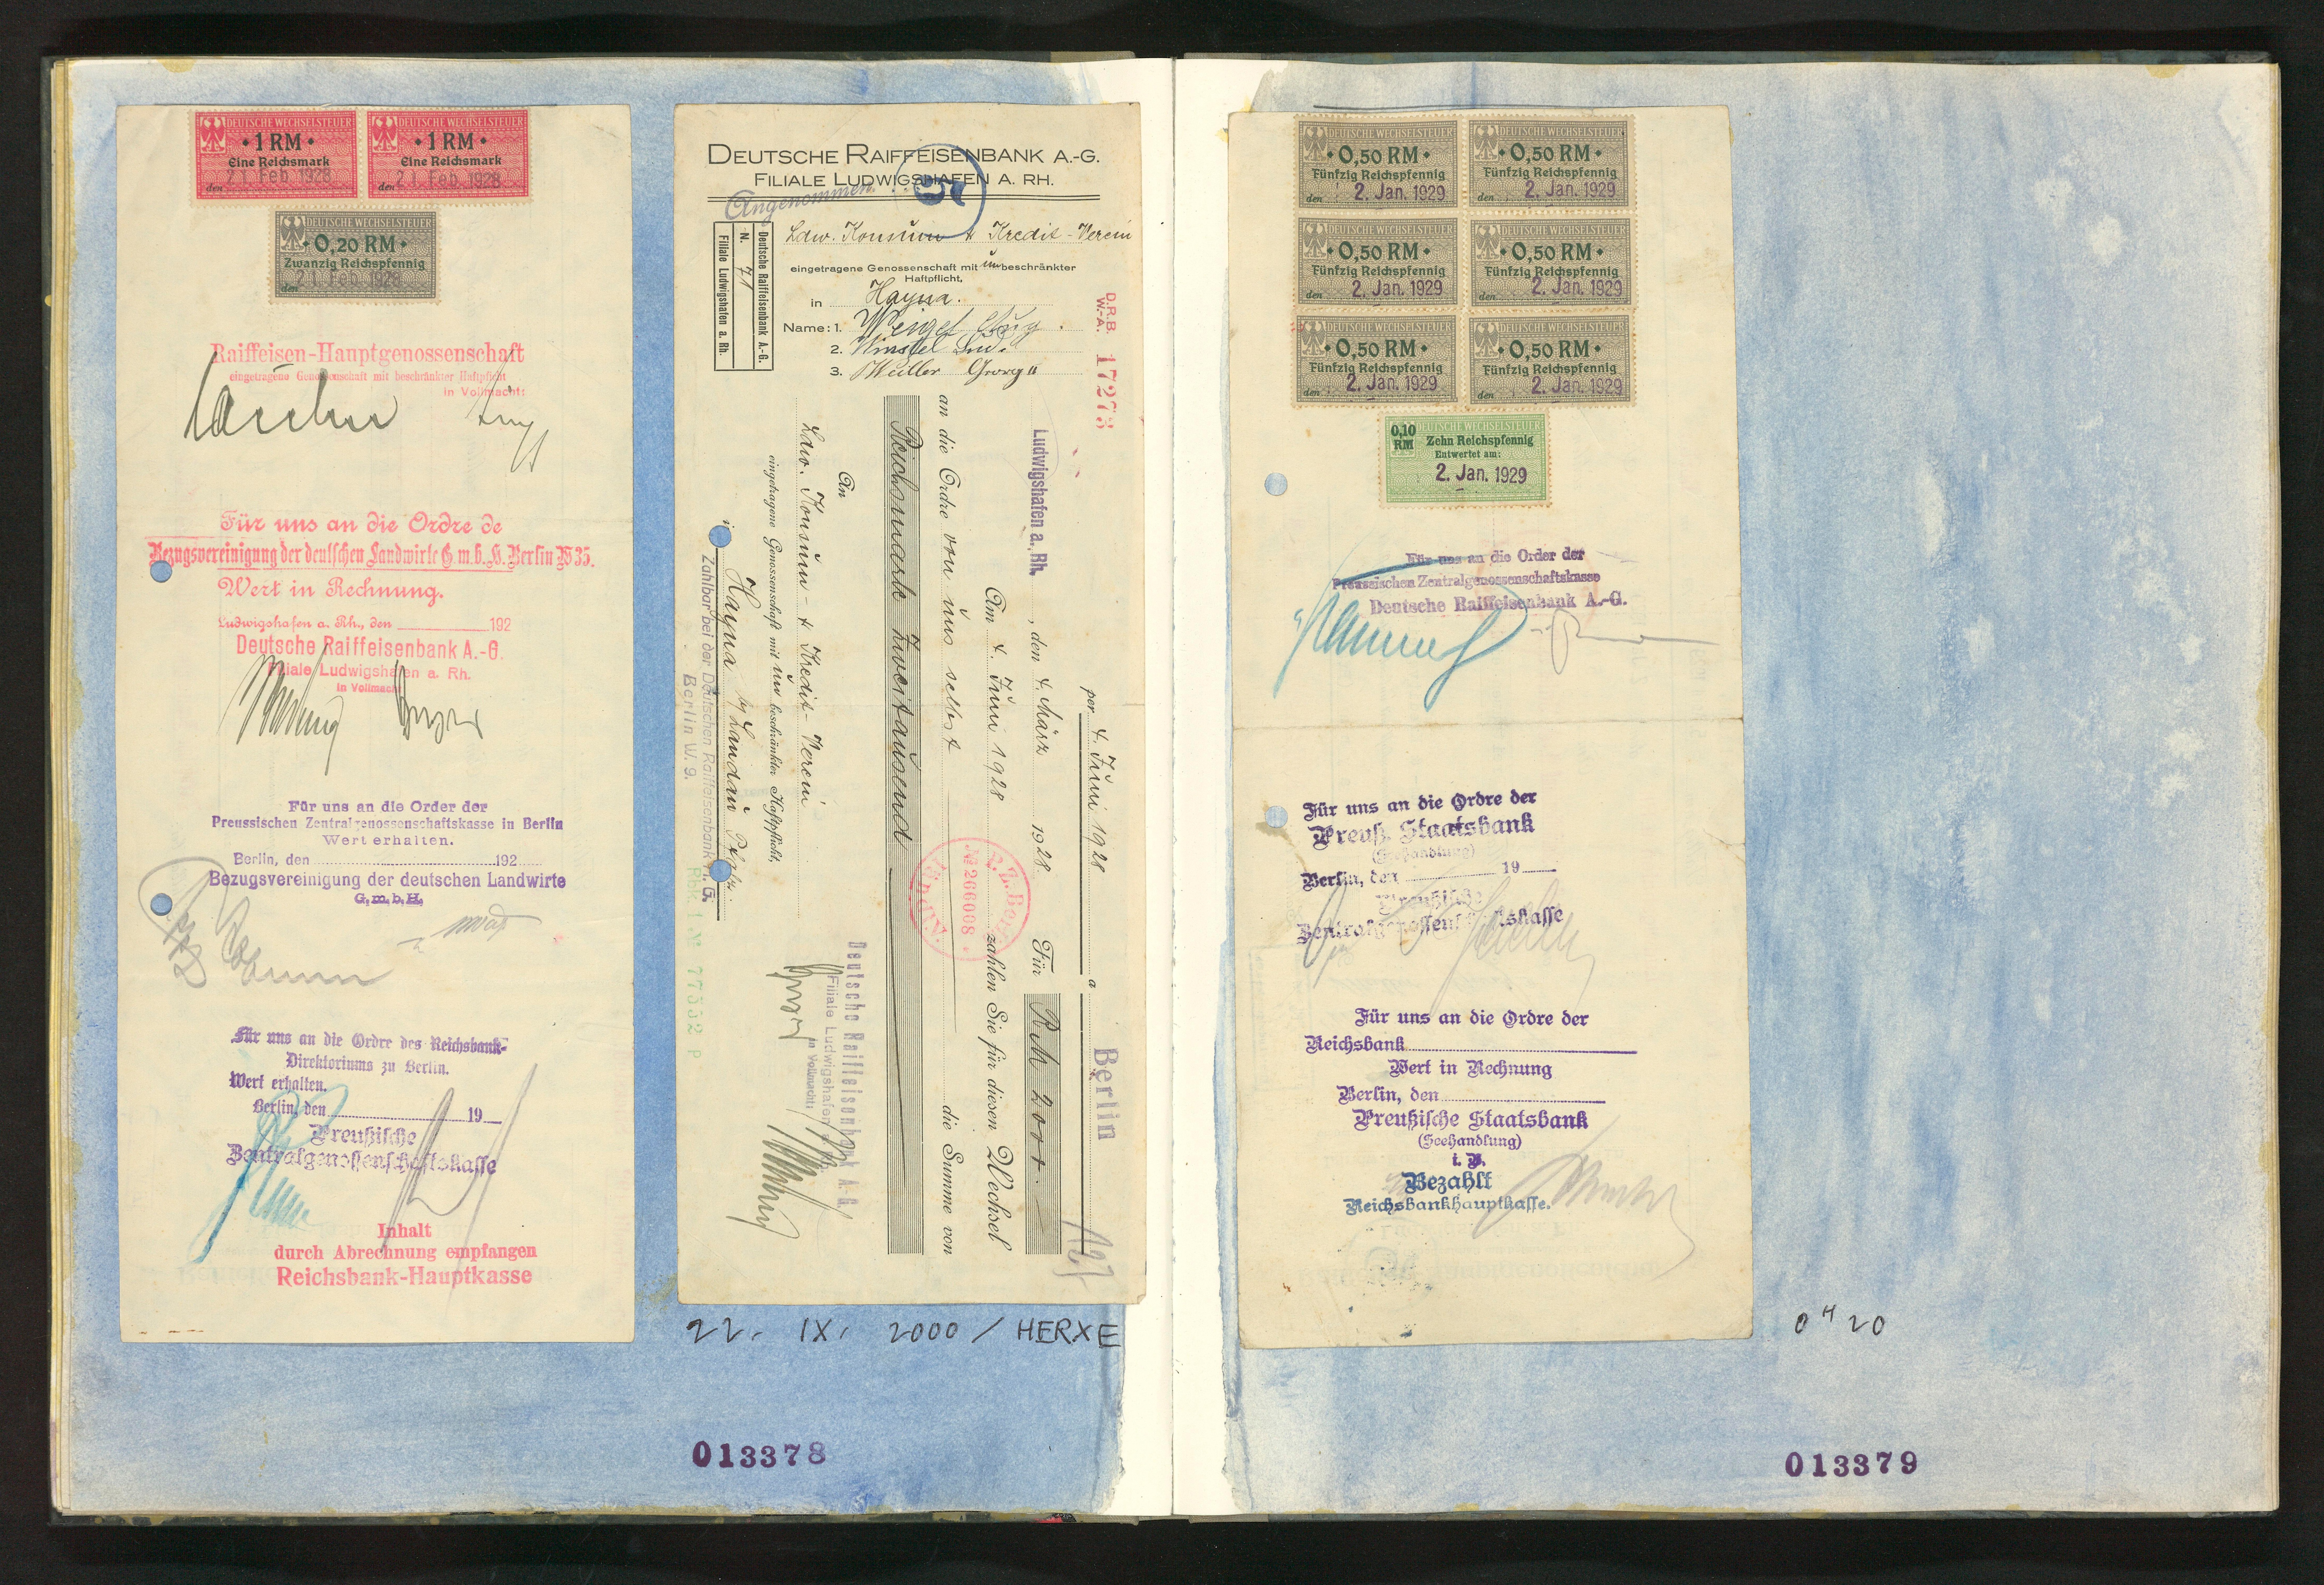 DEUTSCHE WECHSELSTEUER
• 1 RM •
Eine Reichsmark
den 21. Feb. 1928
DEUTSCHE WECHSELSTEUER
• 1 RM •
Eine Reichsmark
den 21. Feb. 1928
DEUTSCHE WECHSELSTEUER
• 0,20 RM •
Zwanzig Reichspfennig
den 21. Feb. 1928
Raiffeisen-Hauptgenossenschaft
eingetragene Genossenschaft mit beschränkter Haftpflicht
in Vollmacht:
Für uns an die Ordre de
Bezugsvereinigung der deutschen Landwirte G.m.b.H. Berlin W 35.
Wert in Rechnung.
Ludwigshafen a. Rh., den 192
Deutsche Raiffeisenbank A.-G.
Filiale Ludwigshafen a. Rh.
in Vollmacht
Für uns an die Order der
Preussischen Zentralgenossenschaftskasse in Berlin
Wert erhalten.
Berlin, den 192
Bezugsvereinigung der deutschen Landwirte
G.m.b.H.
Für uns an die Ordre des Reichsbank-
Direktoriums zu Berlin.
Wert erhalten.
Berlin, den 19
Preußische
Zentralgenossenschaftskasse
Inhalt
durch Abrechnung empfangen
Reichsbank-Hauptkasse
DEUTSCHE RAIFFEISENBANK A.-G.
FILIALE LUDWIGSHAFEN A. RH.
Angenommen
Deutsche Raiffeisenbank A.-G.
N. 71
Filiale Ludwigshafen a. Rh.
Ldw. Konsum & Kredit-Verein
eingetragene Genossenschaft mit unbeschränkter
Haftpflicht,
in Hayna.
Name: 1. Weigel Aug.
2. Winstel Lud.
3. Müller Georg II
D.R.B.
W.-A. 17273
per 4. Juni 1928 a Berlin
Ludwigshafen a. Rh. , den 4. März 1928 Für RM 2000.—
Am 4. Juni 1928 zahlen Sie für diesen Wechsel
an die Ordre von uns selbst die Summe von
Reichsmark Zweitausend
P.Z.Berlin
№ 266008
An
Ldw. Konsum- & Kredit-Verein
eingetragene Genossenschaft mit un beschränkter Haftpflicht,
in Hayna b/ Landau Pfalz.
Zahlbar bei der Deutschen Raiffeisenbank A. G.
Berlin W. 9.
77532 P
Deutsche Raiffeisenbank A. G.
Filiale Ludwigshafen a. Rh.
in Vollmacht:
22. IX. 2000 / HERXE
013378
DEUTSCHE WECHSELSTEUER
• 0,50 RM •
Fünfzig Reichspfennig
den 2. Jan. 1929
DEUTSCHE WECHSELSTEUER
• 0,50 RM •
Fünfzig Reichspfennig
den 2. Jan. 1929
DEUTSCHE WECHSELSTEUER
• 0,50 RM •
Fünfzig Reichspfennig
den 2. Jan. 1929
DEUTSCHE WECHSELSTEUER
• 0,50 RM •
Fünfzig Reichspfennig
den 2. Jan. 1929
DEUTSCHE WECHSELSTEUER
• 0,50 RM •
Fünfzig Reichspfennig
den 2. Jan. 1929
DEUTSCHE WECHSELSTEUER
• 0,50 RM •
Fünfzig Reichspfennig
den 2. Jan. 1929
DEUTSCHE WECHSELSTEUER
0,10 RM
Zehn Reichspfennig
Entwertet am:
2. Jan. 1929
Für uns an die Order der
Preussischen Zentralgenossenschaftskasse
Deutsche Raiffeisenbank A.-G.
Für uns an die Ordre der
Preuß. Staatsbank
(Seehandlung)
Berlin, den 19
Preußische
Zentralgenossenschaftskasse
Für uns an die Ordre der
Reichsbank
Wert in Rechnung
Berlin, den
Preußische Staatsbank
(Seehandlung)
i. V.
Bezahlt
Reichsbankhauptkasse.
0 H 20
013379